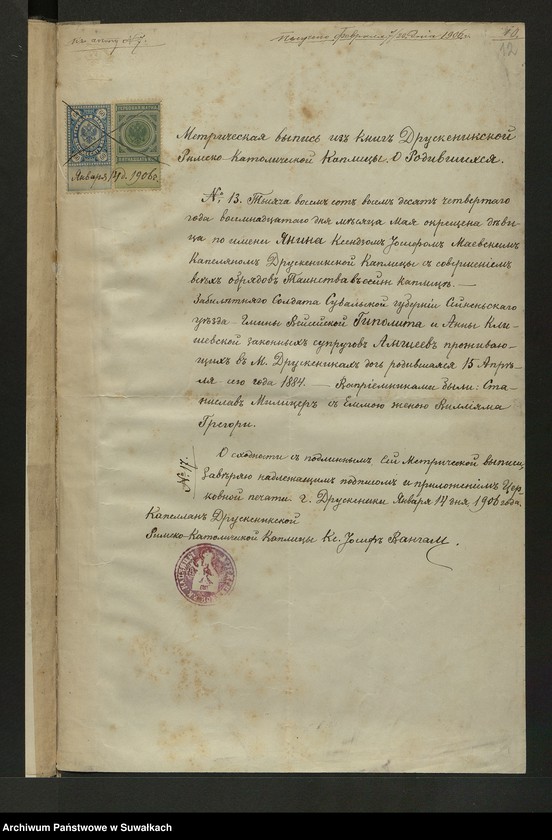 къ акту № 7.
Получено Февраля 7/20 дня 1906 г.
10
12
Января 14 д. 1906 г.
Метрическая выпись изъ книгъ Друскеникской
Римско-Католической Каплицы. О Родившихся.
№ 13. Тысяча восемсотъ восемдесятъ четвертаго
года восемнадцатаго дня мѣсяца Мая окрещена дѣви-
ца по имени Янина Ксендзомъ Іосифомъ Маевскимъ
Капеляномъ Друскеникской Каплицы съ совершеніемъ
всѣхъ обрядовъ Таинства въ сейже каплицѣ. —
Забилетняго Солдата Сувалкской губерніи Сейненьскаго
уѣзда Гмины Вейсейской Гиполита и Анны Кли-
шевской законныхъ супруговъ проживаю-
щихъ въ М. Друскеникахъ дочь родившаяся 15 Апрѣ-
ля сего года 1884. — Вапріемниками были: Ста-
ниславъ Милицеръ съ Еммою женою Вилліяма
Грегори.
№ 17.
О сходности съ подлиннымъ сей Метрической выписи
завѣряю надлежащимъ подписомъ и приложеніемъ Цер-
ковной печати г. Друскеники Января 14 дня 1906 года.
Капелланъ Друскеникской
Римско-Католической Каплицы Кс. Іосифъ
Archiwum Państwowe w Suwałkach